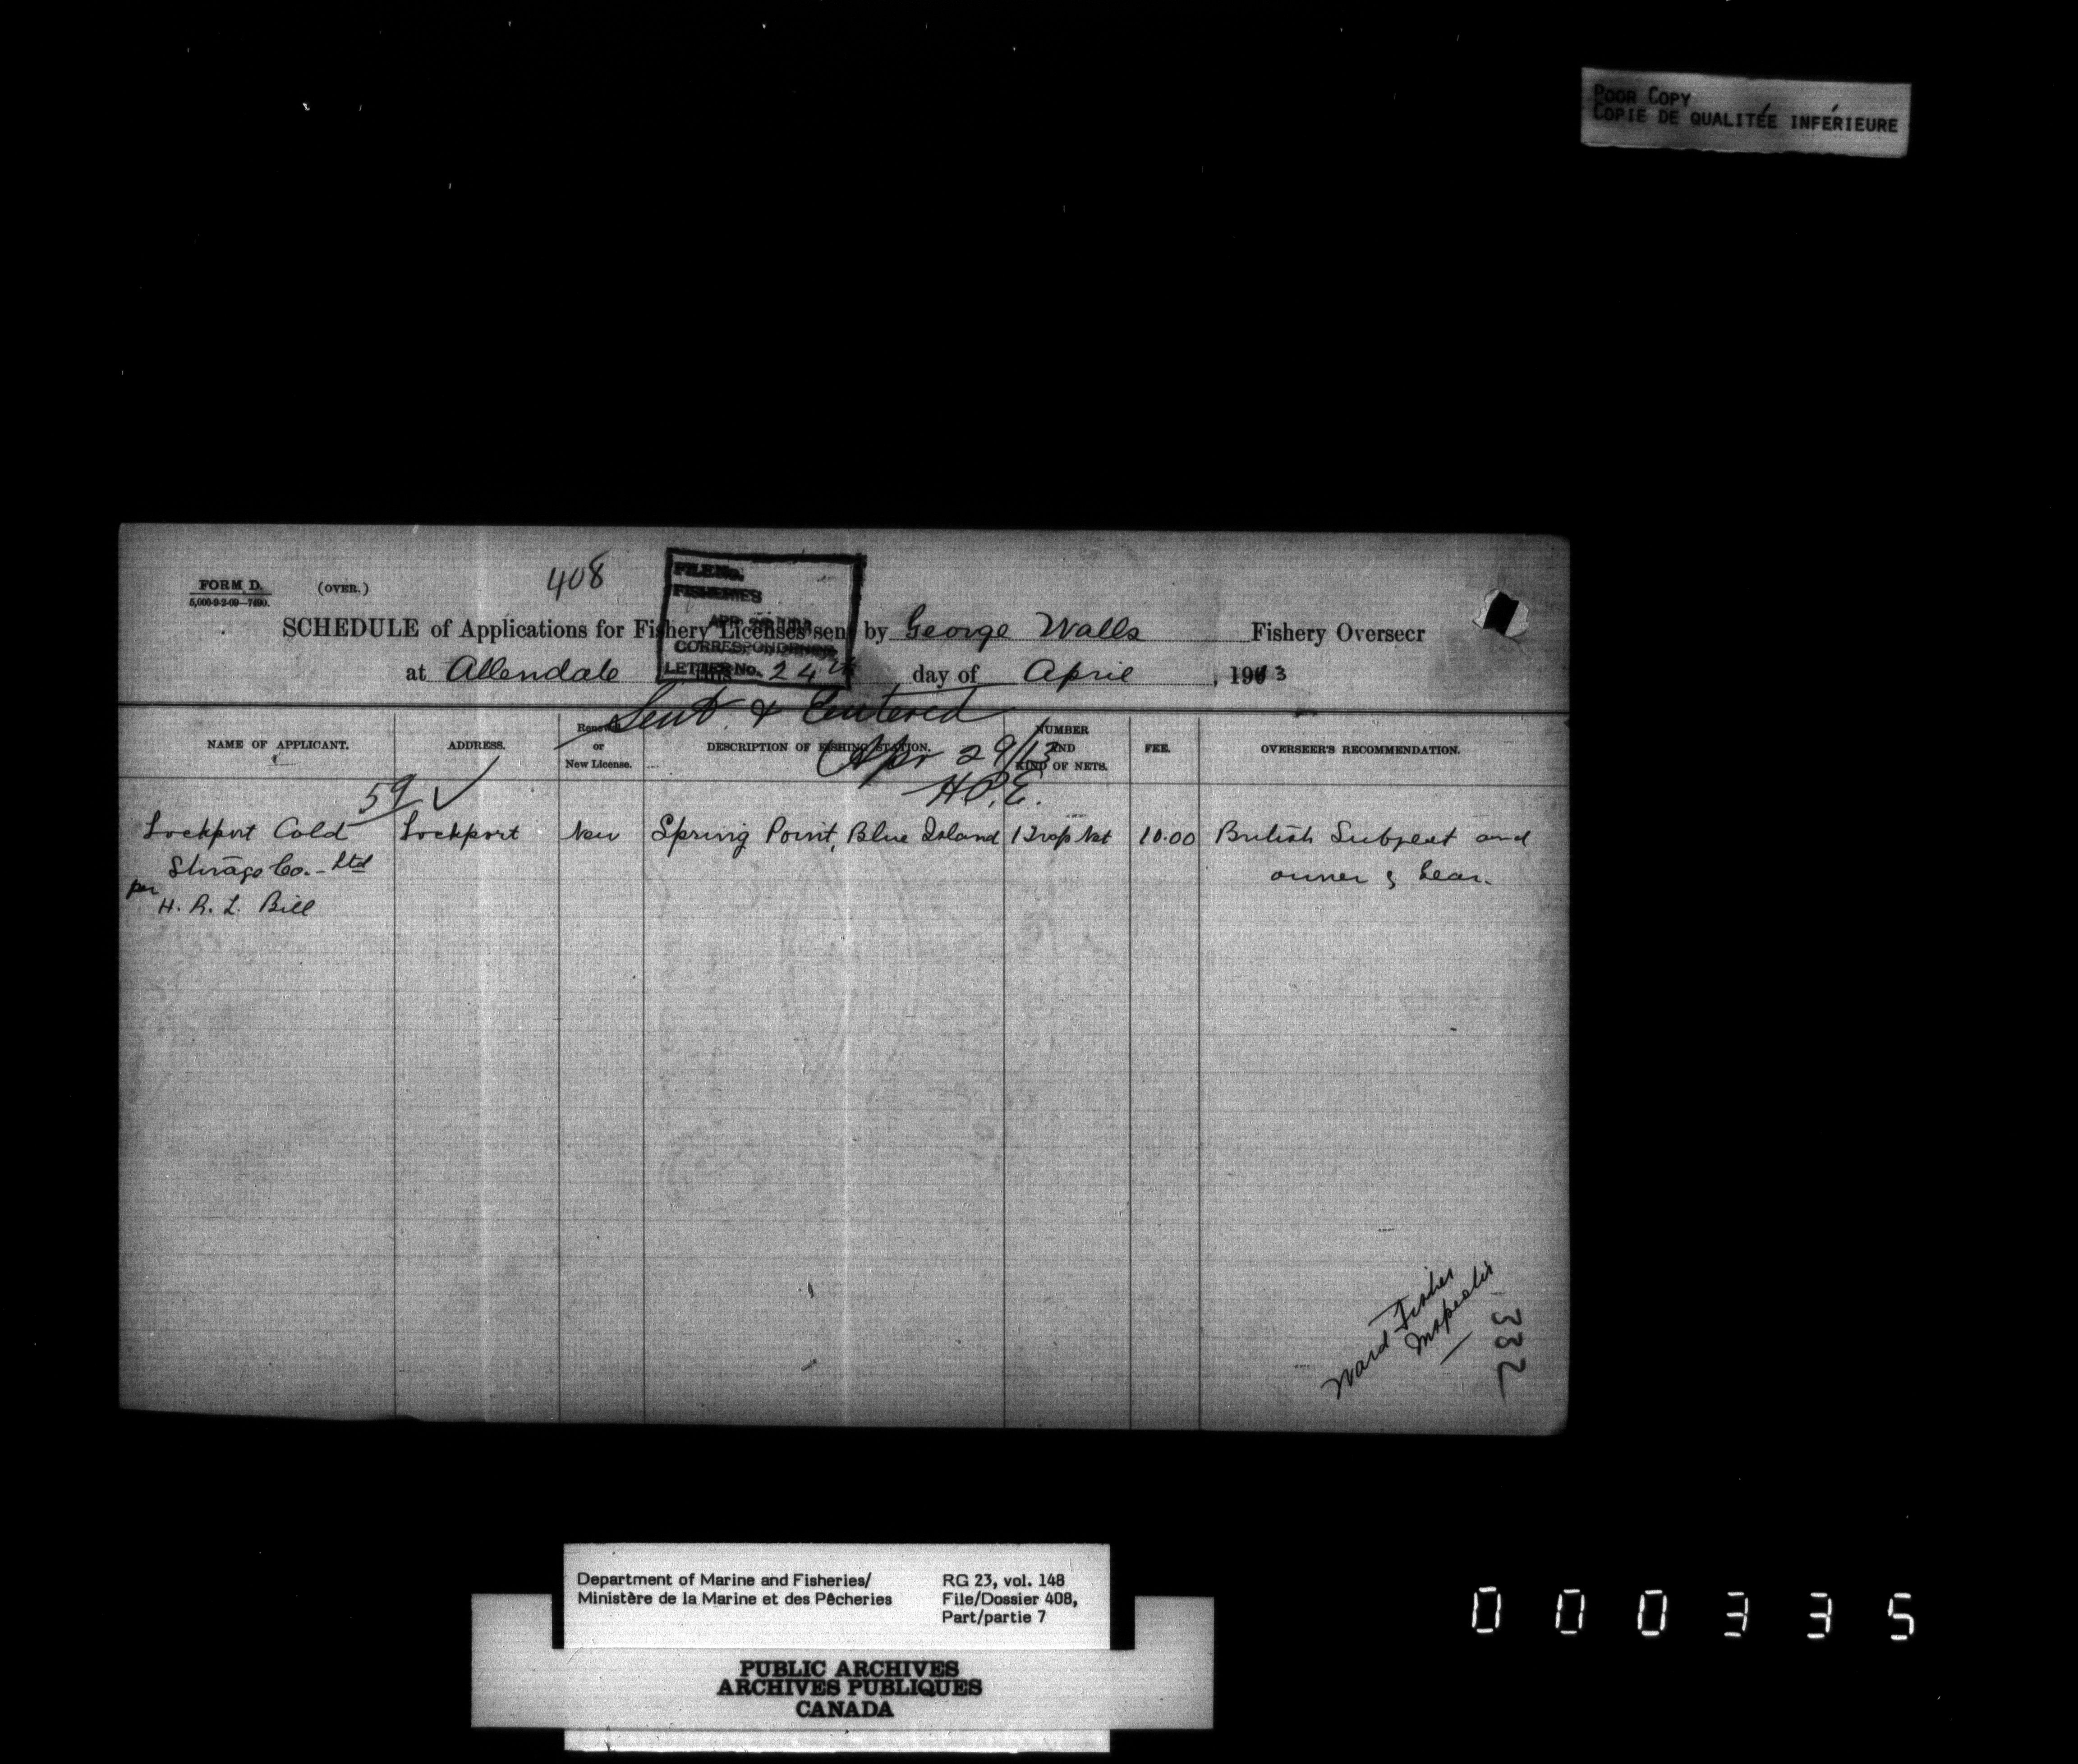 POOR COPY
COPIE DE QUALITÉE INFÉRIEURE
FORM D.
5,000-9-2-09—7490.
(OVER.)
408
FILE No.
FISHERIES
CORRESPONDENCE
LETTER No.
SCHEDULE of Applications for Fishery Licenses sent by George Walls Fishery Overseer
at Allendale this 24th day of April, 1913
Sent & Entered
Apr 29/13
H.P.E.
NAME OF APPLICANT.
ADDRESS.
Renewal
or
New License.
DESCRIPTION OF FISHING STATION.
NUMBER
AND
KIND OF NETS.
FEE.
OVERSEER'S RECOMMENDATION.
59 ✓
Lockport Cold Lockport New Spring Point, Blue Island 1 Trap Net 10.00 British Subject and
Strage Co. - Ltd owner of Gear.
per H. R. L. Bill
Ward Fisher
Inspector
332
Department of Marine and Fisheries/
Ministère de la Marine et des Pêcheries
RG 23, vol. 148
File/Dossier 408,
Part/partie 7
PUBLIC ARCHIVES
ARCHIVES PUBLIQUES
CANADA
000335